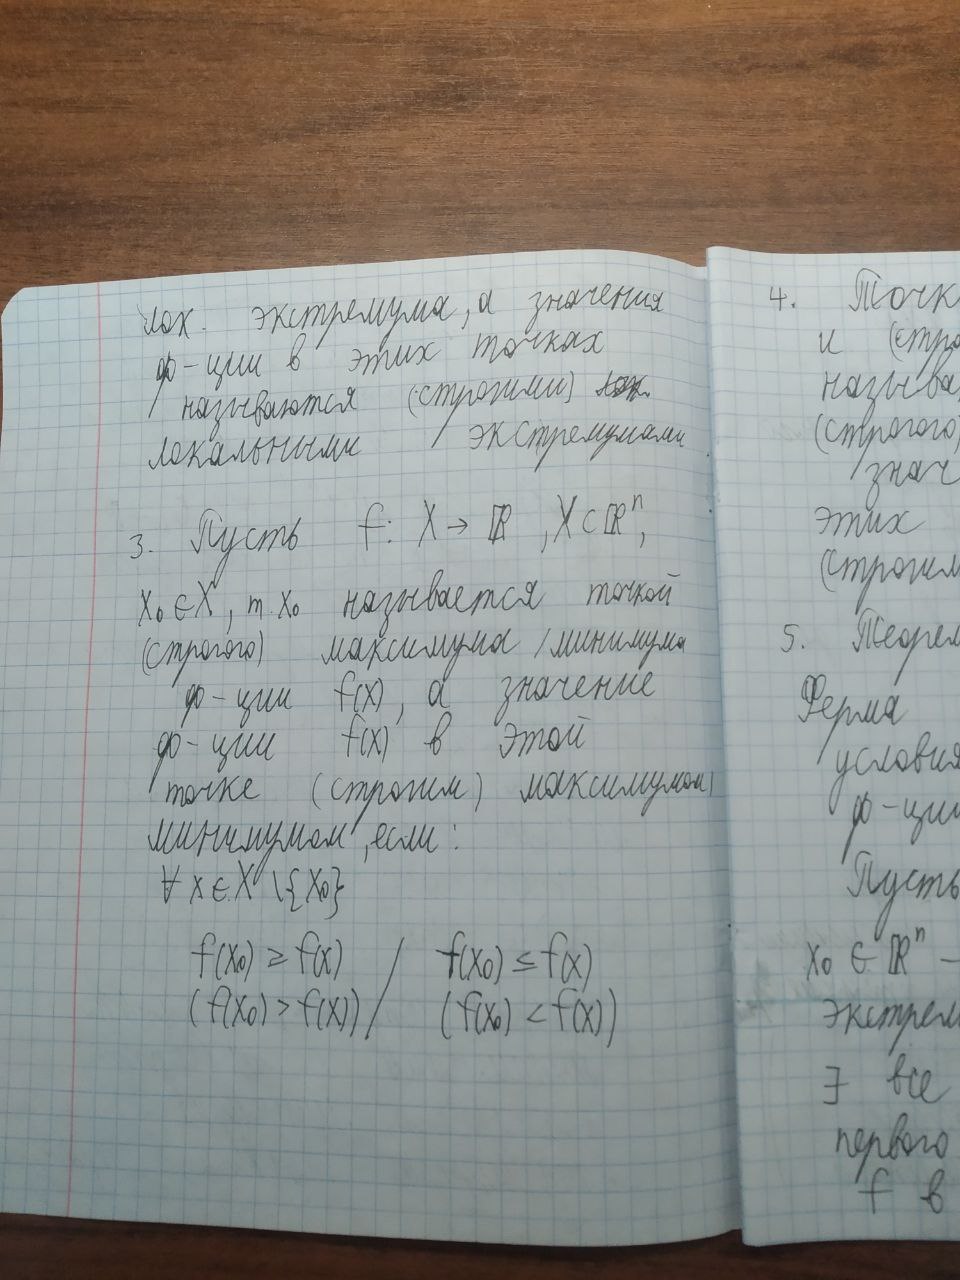 лок. экстремума, а значения
ф-ции в этих точках
называются (строгими) лок.
локальными экстремумами
3. Пусть f: X → ℝ, X ⊂ ℝⁿ,
x₀ ∈ X, т. x₀ называется точкой
(строгого) максимума / минимума
ф-ции f(x), а значение
ф-ции f(x) в этой
точке (строгим) максимумом /
минимумом, если:
∀ x ∈ X \ {x₀}
f(x₀) ≥ f(x) / f(x₀) ≤ f(x)
(f(x₀) > f(x)) / (f(x₀) < f(x))
4. Точк
и (стро
называ
(строгого)
знач
этих
(строгим
5. Теорем
Ферма
условия
ф-ции
Пусть
x₀ ∈ ℝⁿ –
экстрем
∃ все
первого
f в